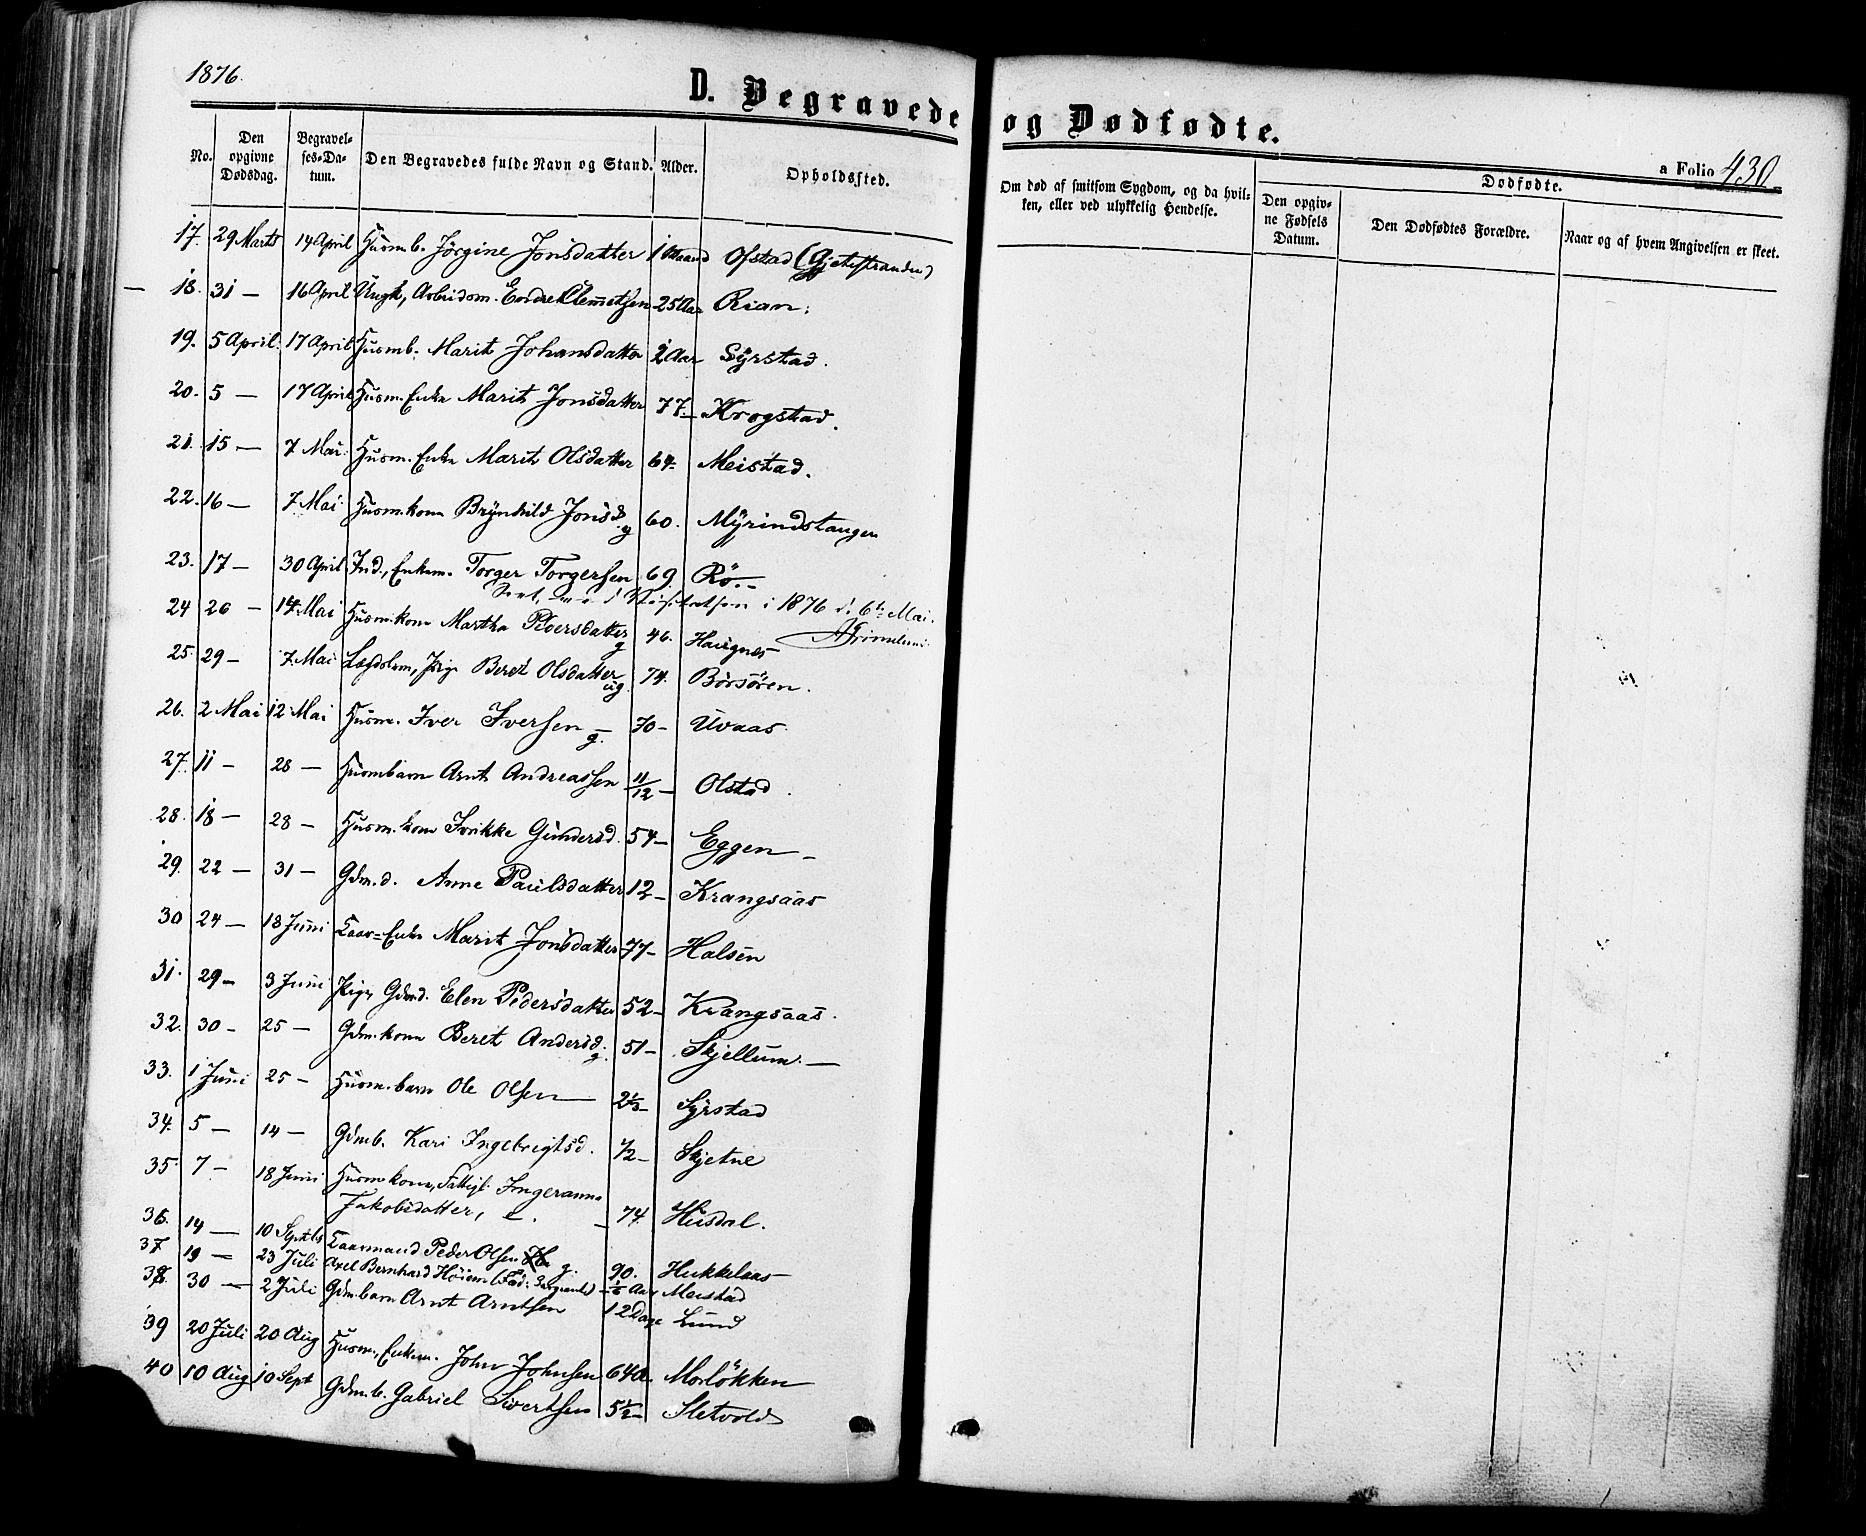 1876.
D. Begravede og Dødfødte.
a Folio 430
No.
Den opgivne Dødsdag.
Begravelses-Datum.
Den Begravedes fulde Navn og Stand.
Alder.
Opholdssted.
Om død af smitsom Sygdom, og da hvilken, eller ved ulykkelig Hendelse.
Dødfødte.
Den opgivne Fødsels Datum.
Den Dødfødtes Forældre.
Naar og af hvem Angivelsen er skeet.
17. 29 Marts 14 April Husmb. Jörgine Jonsdatter 1 Maaned Ofstad (Gjetistranden)
18. 31 — 16 April Ungk, Arbeidsm. Endre Clemetsen 25 Aar Rian.
19. 5 April. 17 April Husmb. Marit Johansdatter 2 Aar Syrstad.
20. 5 — 17 April Husm. Enke Marit Jonsdatter 77 — Krogstad.
21. 15 — 7 Mai. Husm. Enke Marit Olsdatter 64 - Meistad.
22. 16 — 7 Mai. Husm.kone Brynhild Jonsd. g 60. Myrindstangen
23. 17 — 30 April Ind., Enkem. Torger Torgersen 69. Rö. —
i 1876 d. 6te Mai.
24 20 — 14 Mai Husm.kone Martha Pedersdatter g 46. Haugnes
25. 29 — 7 Mai Lægdslem, Pige Beret Olsdatter ug. 74. Börsören.
26. 2 Mai 12 Mai Husm. Iver Iversen g. 70 - Uvaas
27. 11 — 28 — Husmbarn Arnt Andreassen 11/12 — Olstad.
28. 18 — 28 — Husm. kone Frikke Gundersd. 54 — Eggen —
29. 22 — 31 — Gdm. d. Anne Paulsdatter 12 — Krangsaas
30 24 — 18 Juni Kaar=Enke Marit Jonsdatter 77 — Halsen
31. 29 — 3 Juni Pige, Gdmd. Elen Pedersdatter 52 — Krangsaas.
32. 30 — 25 — Gdm.kone Beret Andersd. g. 51 — Skjellum. —
33. 1 Juni 25 — Husm. barn Ole Olsen — Syrstad
34. 5 — 14 — Gdmb. Kari Ingebrigtsd. 1/2 — Skjetne
35. 7 — 18 Juni Husm.kone, Fattigl. Ingeranna
Jakobsdatter, — 74. Husdal.
36. 14 — 10 Septbr Kaarmand Peder Olsen g. 90. Hukkelaas
37 19 — 23 Juli Axel Bernhard Höiem (Fad: Sergeant) 1/6 Aar Meistad
38. 30 — 2 Juli Gdm. barn Arnt Arntsen 12 Dage Lund
39 20 Juli 20 Aug Husm., Enkem. John Johnsen 64 A. Morlökken
40 10 Aug 10 Sept Gdm.b. Gabriel Sivertsen 5 1/2 — Sletvold